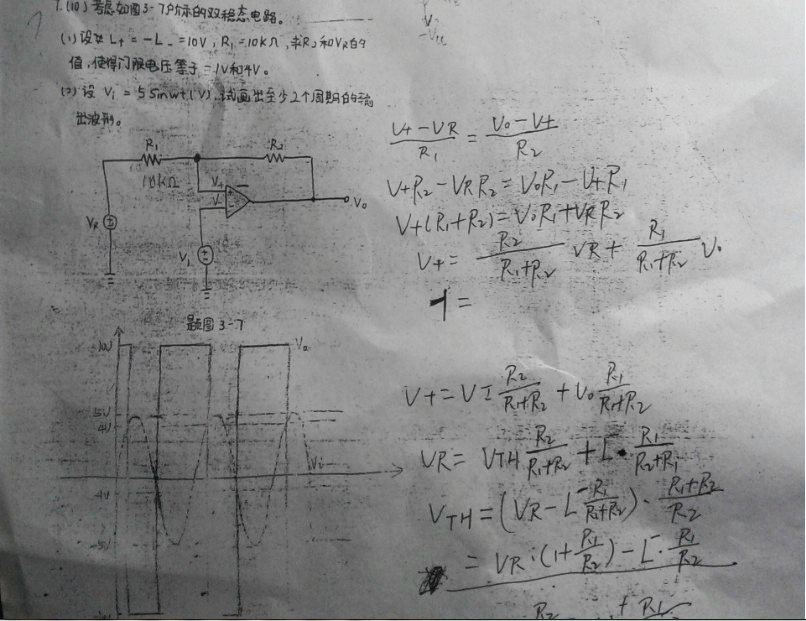 7.(10) 考虑如图3-7所示的双稳态电路。
(1)设 L+ = -L- = 10V, R₁ = 10kΩ, 求R₂和VR的
值,使得门限电压等于 -1V和4V。
(2)设 Vi = 5 Sinwt (V), 试画出至少2个周期的输
出波形。
-Vcc
R₁
R₂
10kΩ
V+
V-
Vo
VR
Vi
题图 3-7
10V
Vo
5V
4V
Vi
-1V
-5V
(V+ - VR)/R₁ = (Vo - V+)/R₂
V+R₂ - VRR₂ = VoR₁ - V+R₁
V+(R₁+R₂) = VoR₁ + VRR₂
V+ = R₂/(R₁+R₂) VR + R₁/(R₁+R₂) Vo
-1 =
V+ = VI R₂/(R₁+R₂) + Vo R₁/(R₁+R₂)
VR = VTH R₂/(R₁+R₂) + L⁻ · R₁/(R₂+R₁)
VTH = (VR - L⁻ R₁/(R₁+R₂)) · (R₁+R₂)/R₂
= VR · (1 + R₁/R₂) - L⁻ · R₁/R₂
R₂ + R₁